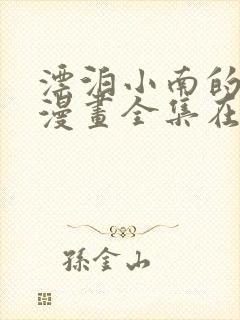 漂泊小南的
漫畫全集在
孫金山